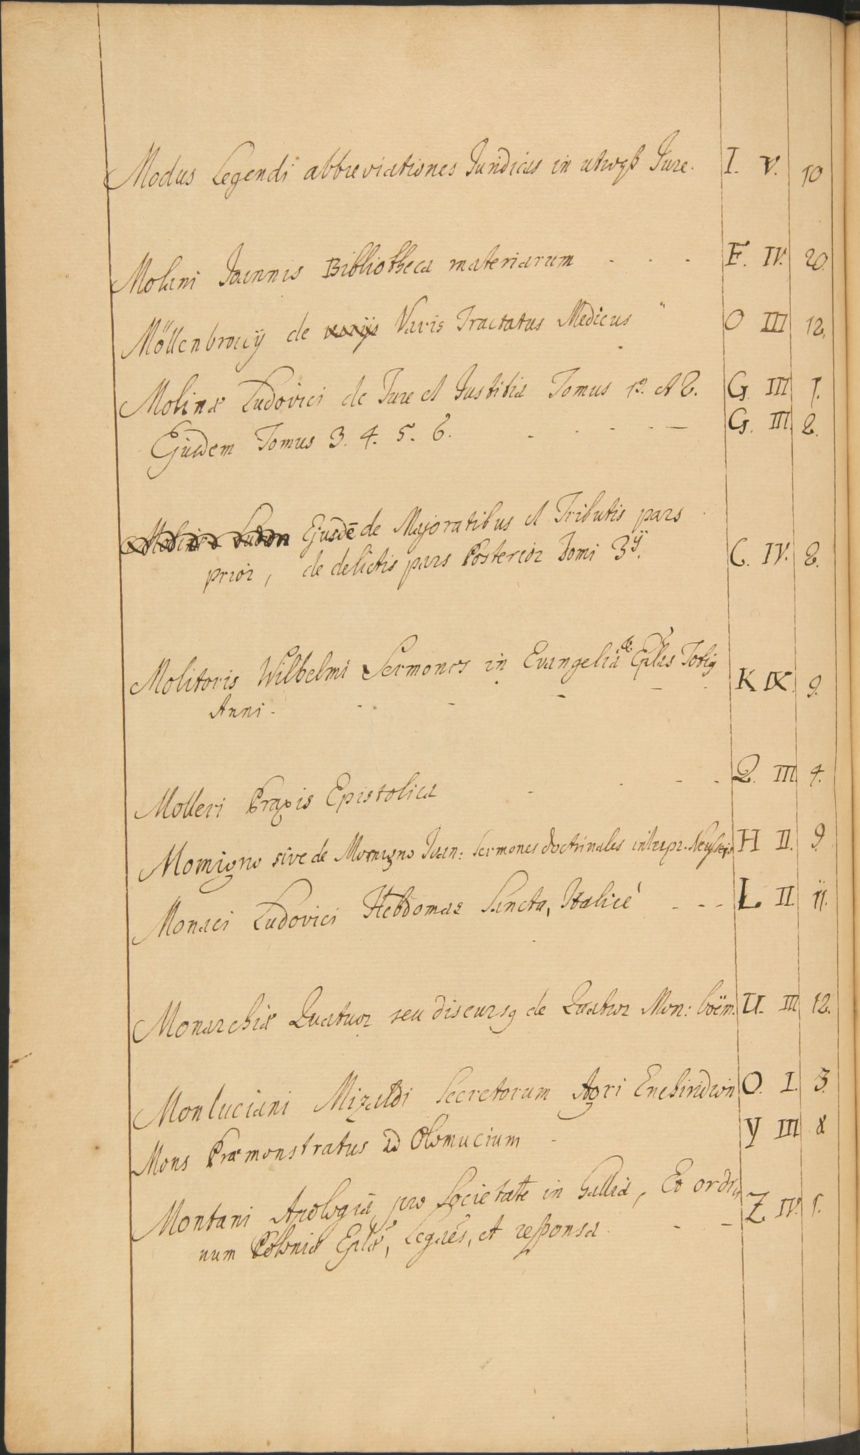 Modus Legendi abbreviationes Juridicas in utroq3 Jure. I. V. 10
Molani Joannis Bibliotheca materiarum . . . F. IV. 20
Möllenbrocij de Varis Tractatus Medicus O III 12.
Molinæ Ludovici de Jure et Justitia Tomus 1º. et 2. G III 1.
Ejusdem Tomus 3. 4. 5. 6. . . . . — G. III. 2.
Ejusdē de Majoratibus et Tributis pars
prior, de delictis pars Posterior Tomi 3ij. C. IV. 2.
Molitoris Wilhelmi Sermones in Evangelia & Eplas Totig
Anni . - - - - K IX. 9.
Molleri Praxis Epistolica - - - Q. III. 4.
Momigno sive de Momigno Joan: Sermones doctrinales H II. 9.
Monaci Ludovici Hebdomas Sancta, Italicè - - - L II 11.
Monarchiæ Quatuor seu discursq de Quatuor Mon: boëm. U. III 12.
Monluciani Mizaldi Secretorum Agri Enchiridion O. I. 3.
Mons Præmonstratus ad Olomucium - Y III 8
Montani Apologia pro Societate in Gallia, Et ordi,
num Poloniæ Eplæ, Legaēs, et responsa - - Z IV. 1.